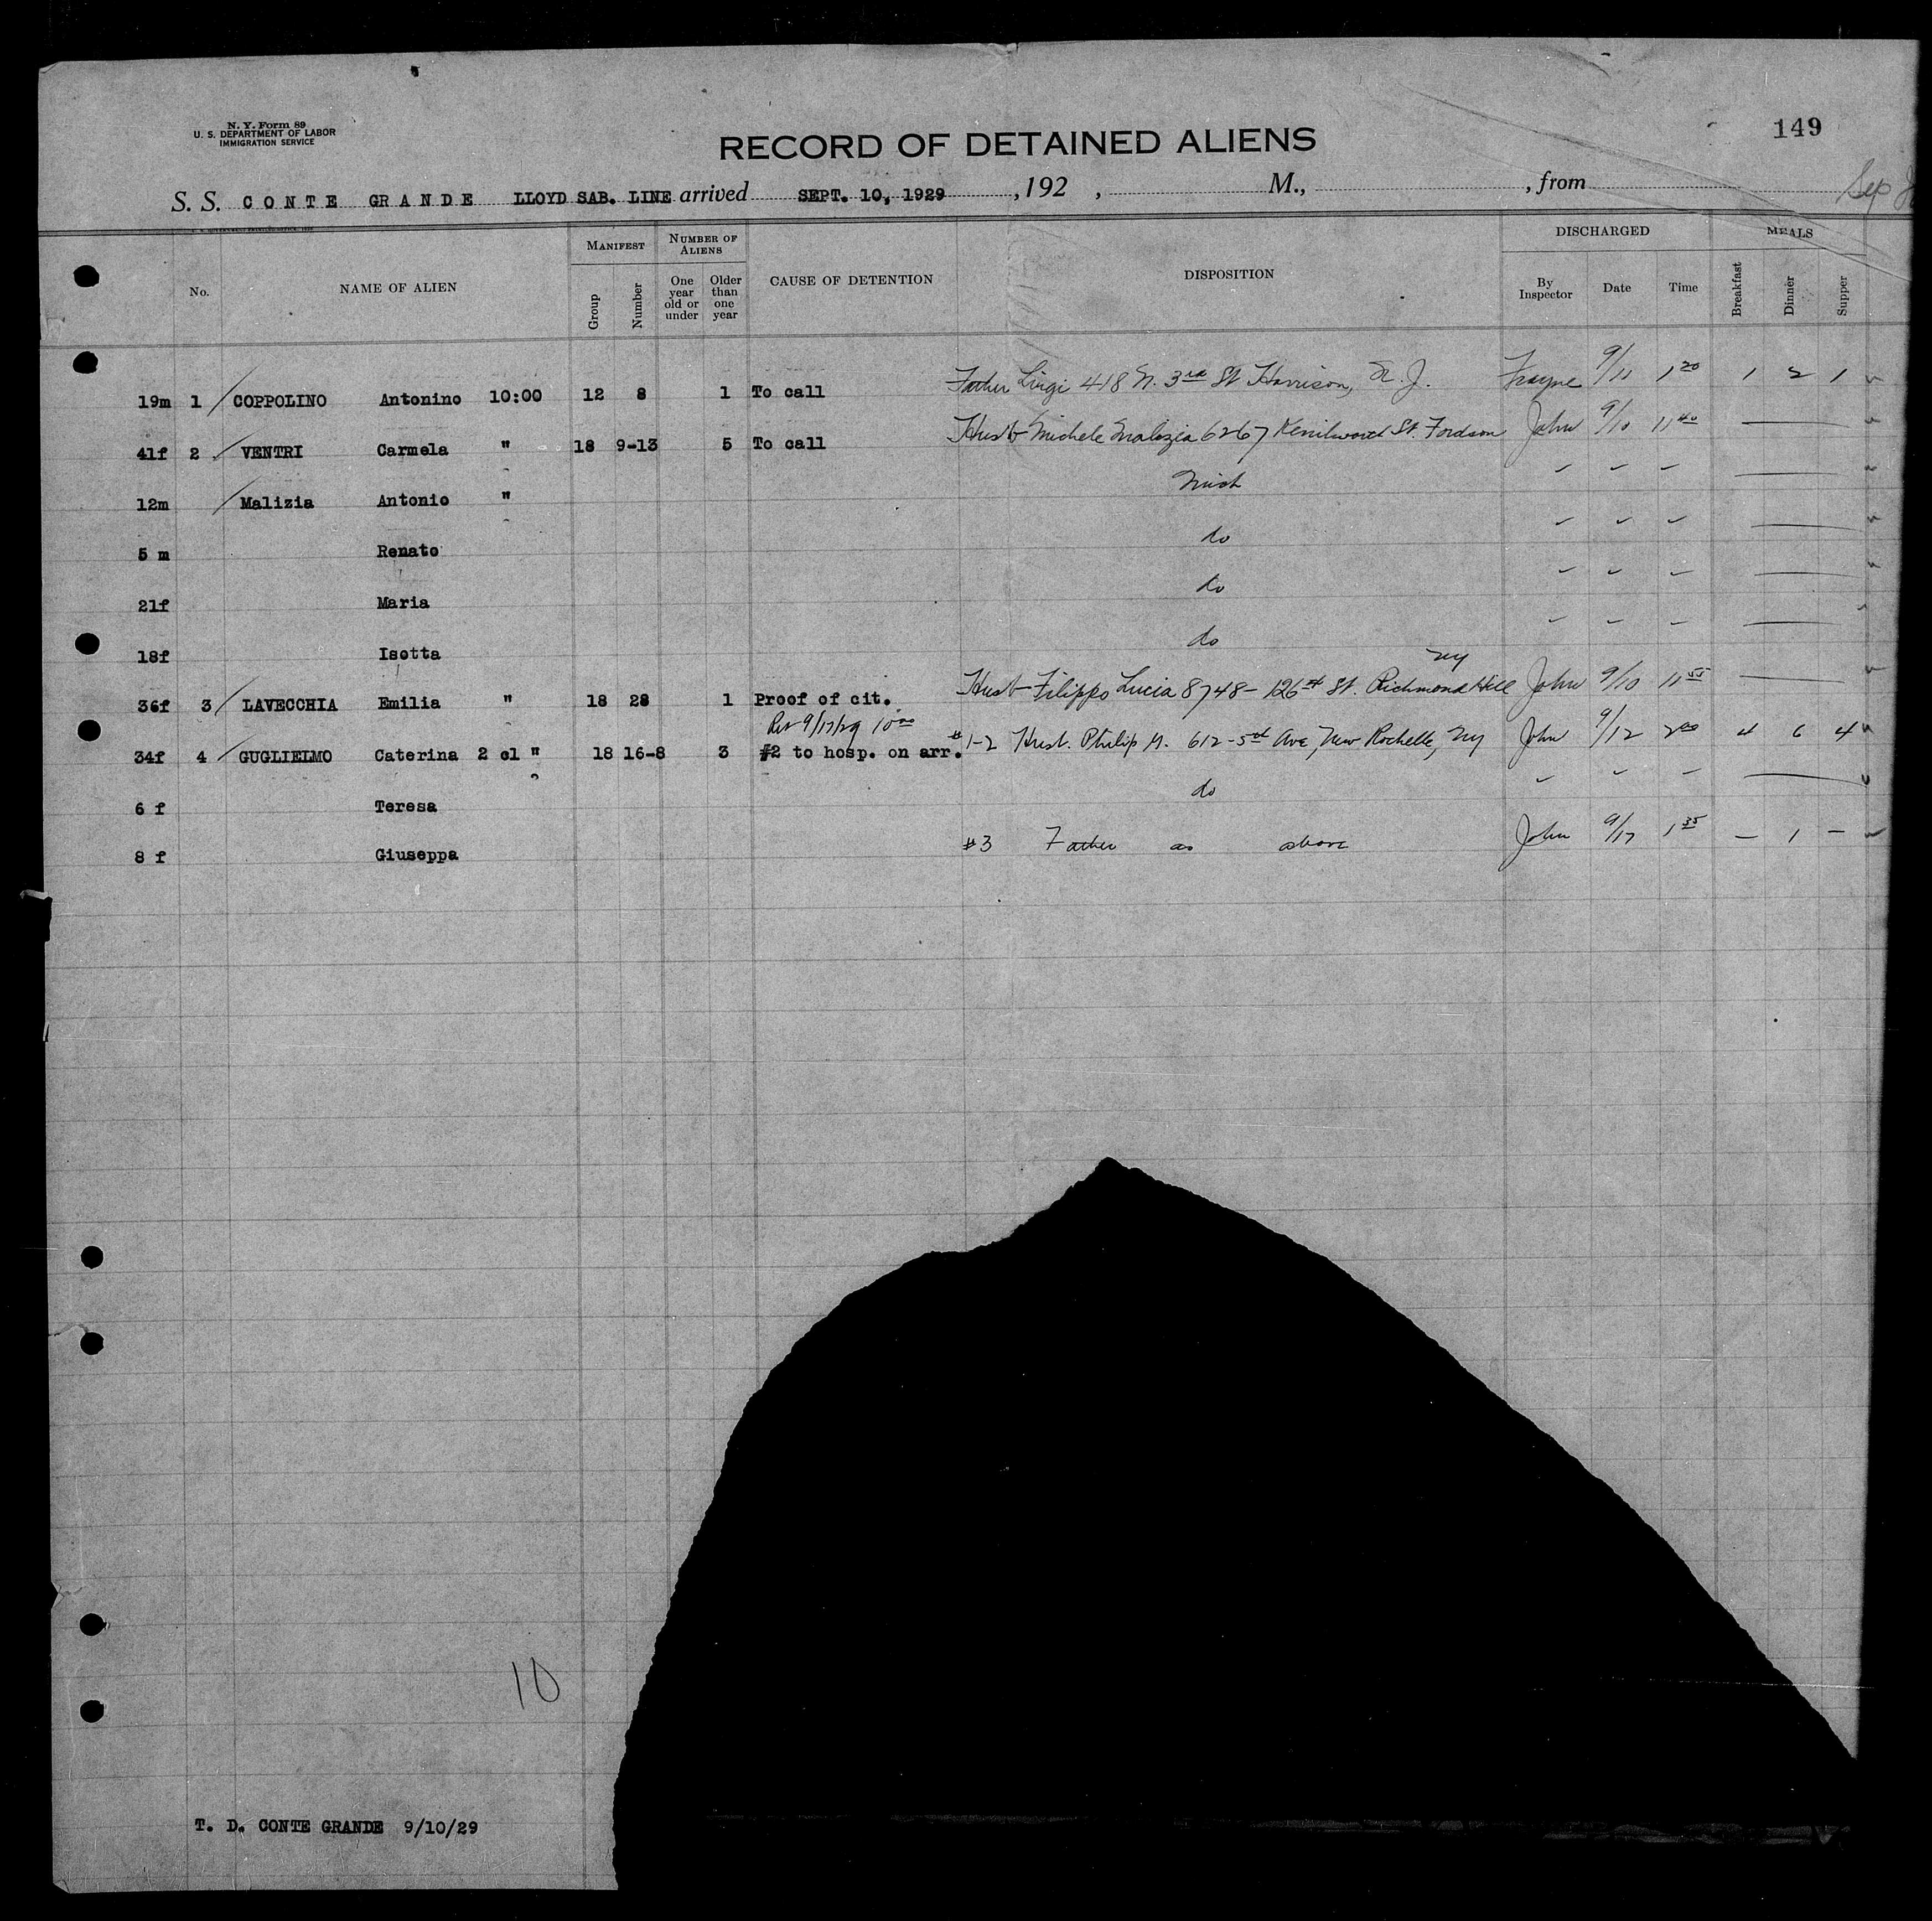 N. Y. Form 89
U. S. DEPARTMENT OF LABOR
IMMIGRATION SERVICE
RECORD OF DETAINED ALIENS
149
S. S. CONTE GRANDE LLOYD SAB. LINE arrived SEPT. 10, 1929, 192 , M., , from
Sep
No. NAME OF ALIEN MANIFEST Group Number NUMBER OF ALIENS One year old or under Older than one year CAUSE OF DETENTION DISPOSITION DISCHARGED By Inspector Date Time MEALS Breakfast Dinner Supper
19m 1 / COPPOLINO Antonino 10:00 12 8 1 To call Father Luigi 418 N. 3rd St Harrison, N. J. Frayne 9/11 1 20 1 2 1
41f 2 VENTRI Carmela " 18 9-13 5 To call Husb Michele Malizia 6267 Kenilworth St. Fordson John 9/10 11 40 —
12m / Malizia Antonio " Mich
5 m Renato do
21f Maria do
18f Isotta do
36f 3 / LAVECCHIA Emilia " 18 28 1 Proof of cit. Husb Filippo Lucia 8748 - 126th St. Richmond Hill NY John 9/10 11 55 —
Ret 9/17/29 10 00
34f 4 / GUGLIELMO Caterina 2 cl " 18 16-8 3 #2 to hosp. on arr. #1-2 Husb. Philip G. 612 - 5th Ave, New Rochelle, NY John 9/12 2 00 4 6 4
6 f Teresa do
8 f Giuseppa #3 Father as above John 9/17 1 35 — 1 —
10
T. D. CONTE GRANDE 9/10/29